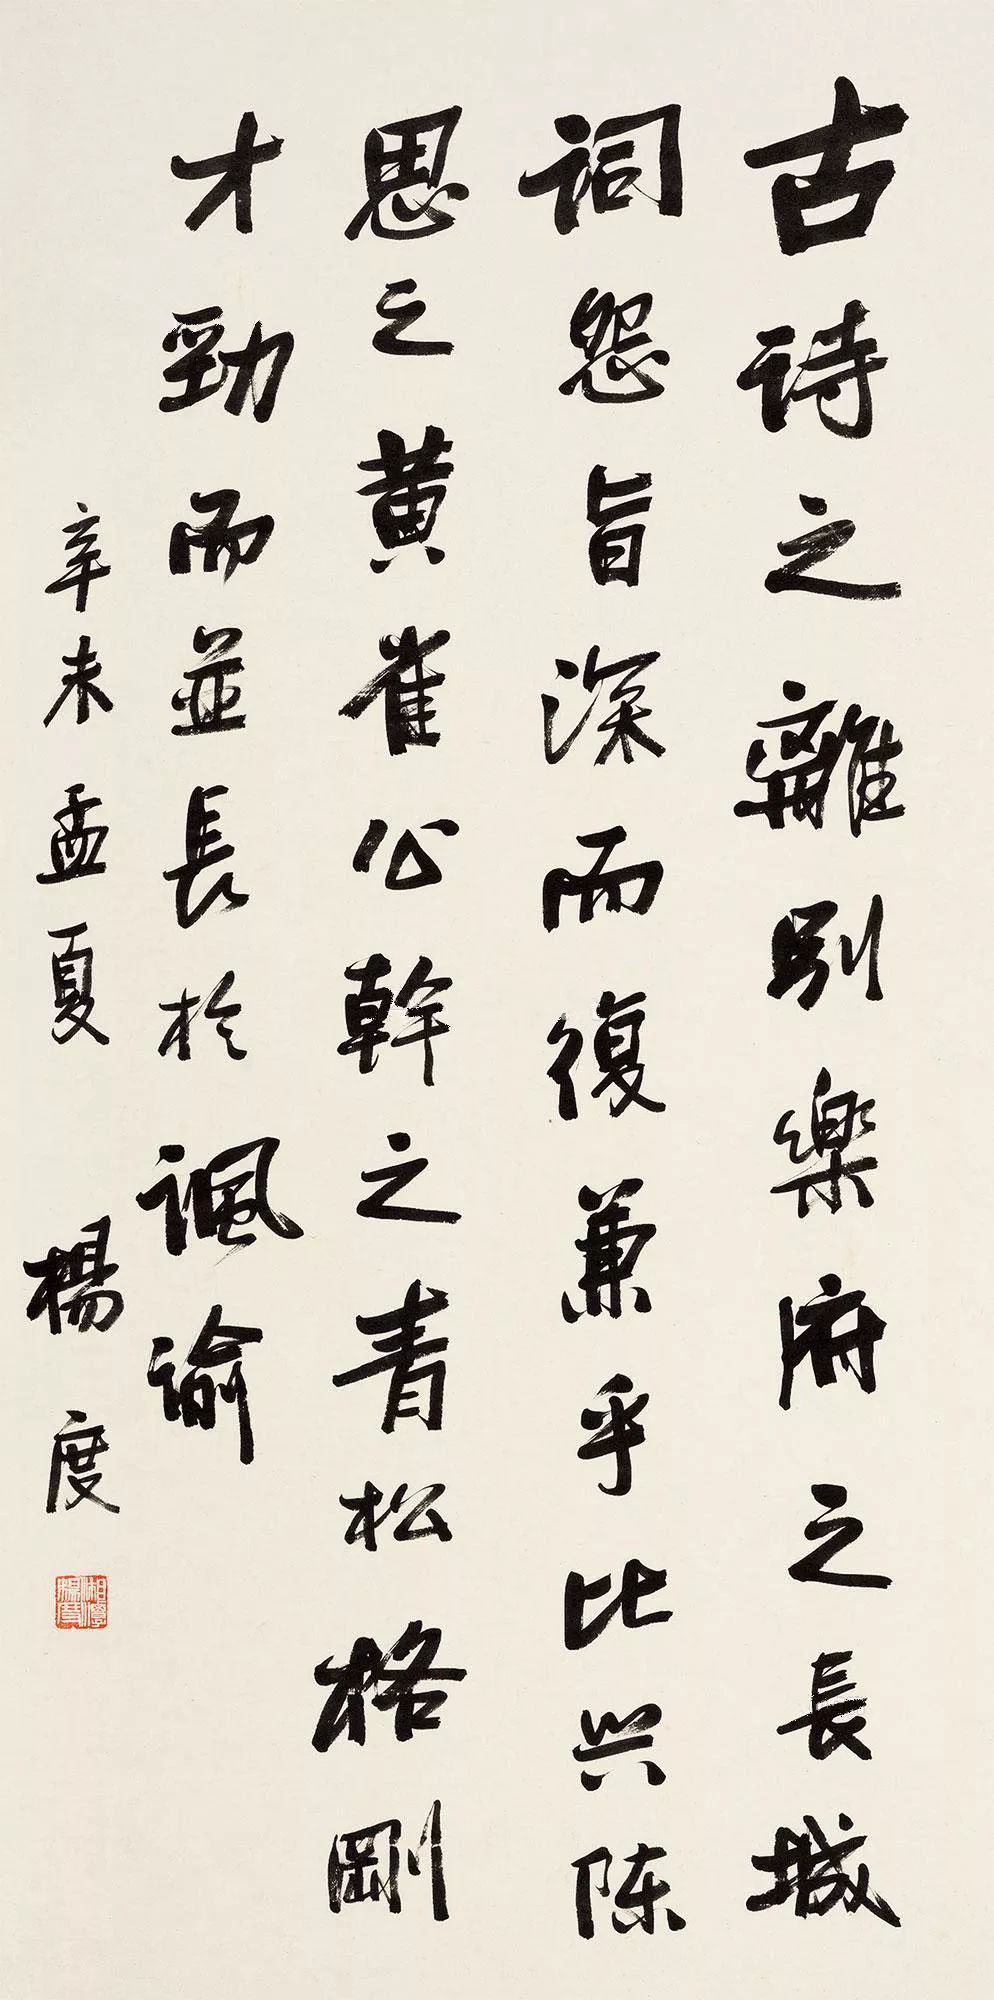 古诗之離别樂府之長城
词怨旨深而復兼乎比兴陈
思之黄雀公幹之青松格剛
才勁而並長於諷諭
辛未孟夏 楊度
湘潭楊度